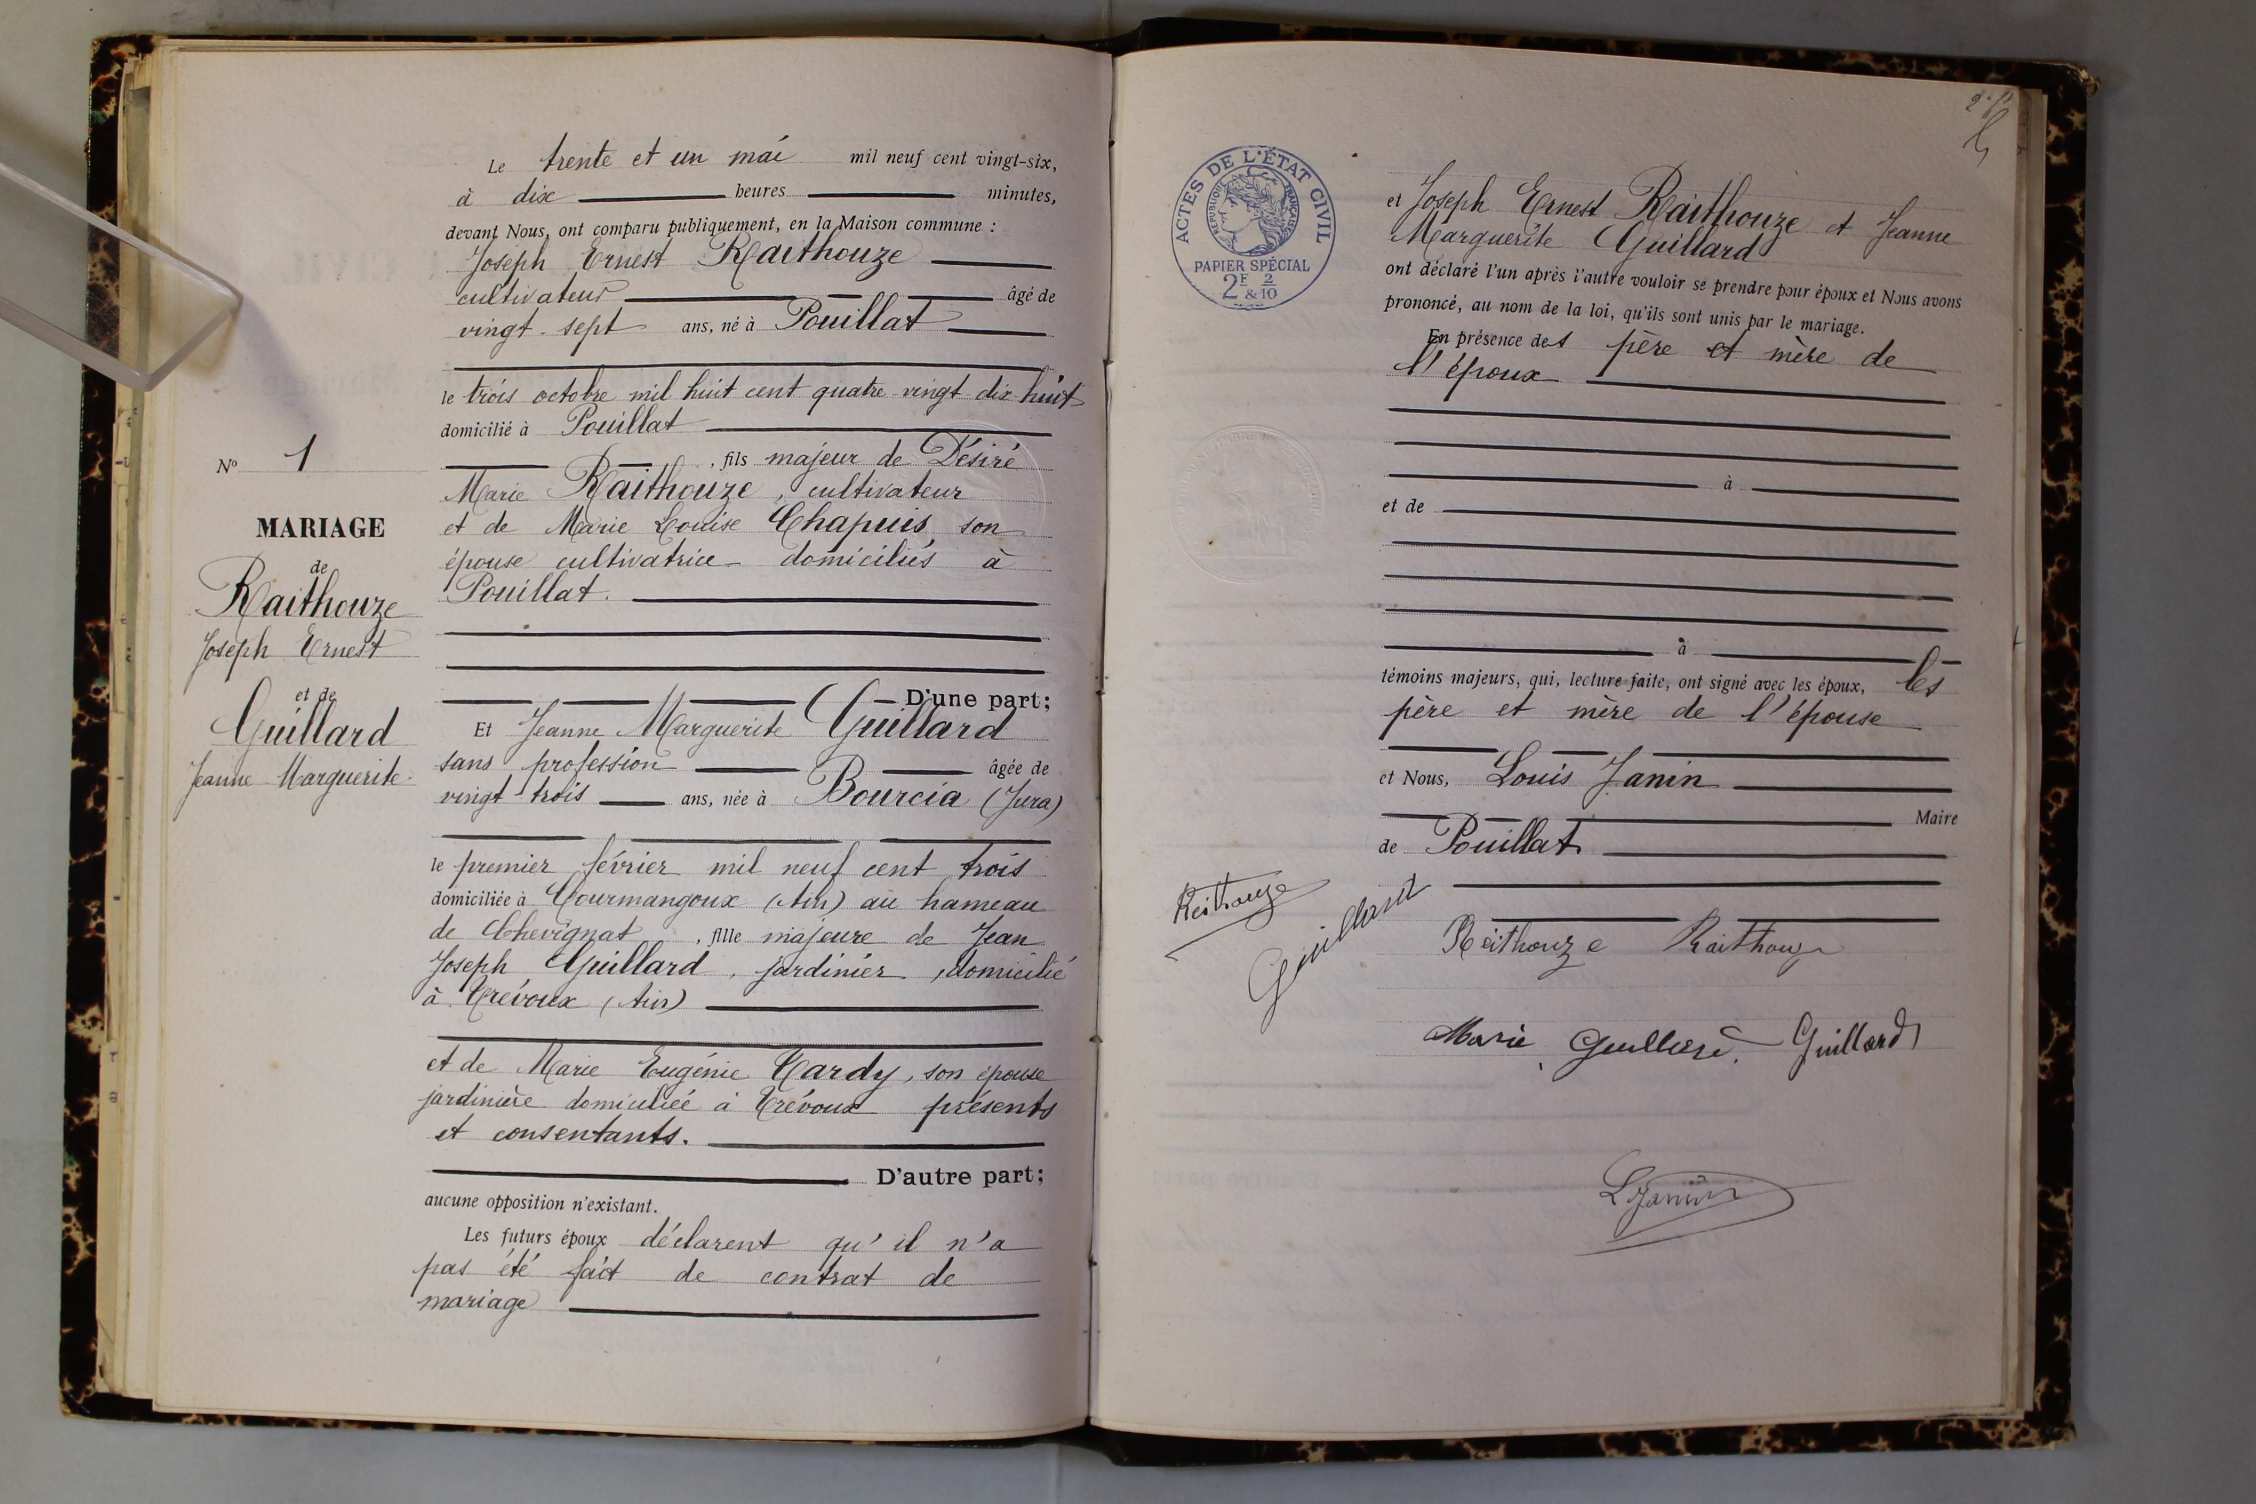 Le trente et un mai mil neuf cent vingt-six,
à dix heures minutes,
devant Nous, ont comparu publiquement, en la Maison commune :
Joseph Ernest Raithouze
cultivateur âgé de
vingt-sept ans, né à Pouillat
le trois octobre mil huit cent quatre-vingt dix-huit
domicilié à Pouillat
, fils majeur de Désiré
Marie Raithouze, cultivateur
et de Marie Louise Chapuis son
épouse cultivatrice domiciliés à
Pouillat.
D'une part;
Et Jeanne Marguerite Guillard
sans profession âgée de
vingt-trois ans, née à Bourcia (Jura)
le premier février mil neuf cent trois
domiciliée à Courmangoux (Ain) au hameau
de Chevignat, fille majeure de Jean
Joseph Guillard, jardinier, domicilié
à Trévoux (Ain)
et de Marie Eugénie Cardy, son épouse
jardinière domiciliée à Trévoux présents
et consentants.
D'autre part;
aucune opposition n'existant.
Les futurs époux déclarent qu'il n'a
pas été fait de contrat de
mariage
No 1
MARIAGE
de
Raithouze
Joseph Ernest
et de
Guillard
Jeanne Marguerite
ACTES DE L'ÉTAT CIVIL
RÉPUBLIQUE FRANÇAISE
PAPIER SPÉCIAL
2F & 2/10
et Joseph Ernest Raithouze et Jeanne
Marguerite Guillard
ont déclaré l'un après l'autre vouloir se prendre pour époux et Nous avons
prononcé, au nom de la loi, qu'ils sont unis par le mariage.
En présence des père et mère de
l'époux
à
et de
à
témoins majeurs, qui, lecture faite, ont signé avec les époux, les
père et mère de l'épouse
et Nous, Louis Janin
Maire
de Pouillat
Raithouze
Guillard
Raithouze Raithouze
Marie Guillard
L Janin